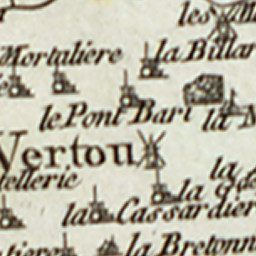 les
Mortaliere
la Billar
le Pont Bari
la
Vertou
tellerie
la
la
la Cassardier
tiere
la Bretonn